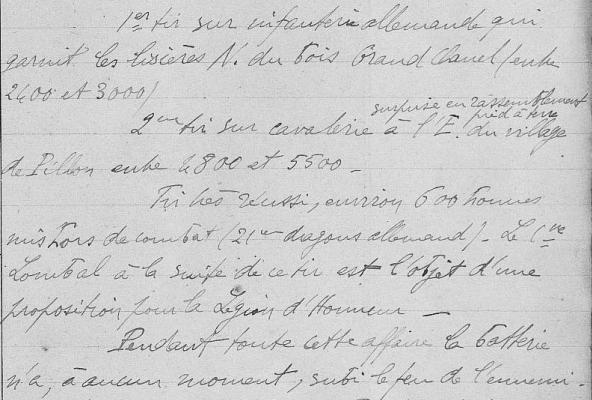 1er tir sur infanterie allemande qui
garnit les lisières N. du bois Grand Chanel (entre
2400 et 3000)
surprise en rassemblement
pied à terre
2eme tir sur cavalerie à l'E. du village
de Pillon entre 4800 et 5500 -
Tir très réussi, environ 600 hommes
mis hors de combat (21eme dragons allemand). Le Cne
Lombal à la suite de ce tir est l'objet d'une
proposition pour la Légion d'Honneur -
Pendant toute cette affaire la batterie
n'a, à aucun moment, subi le feu de l'ennemi.